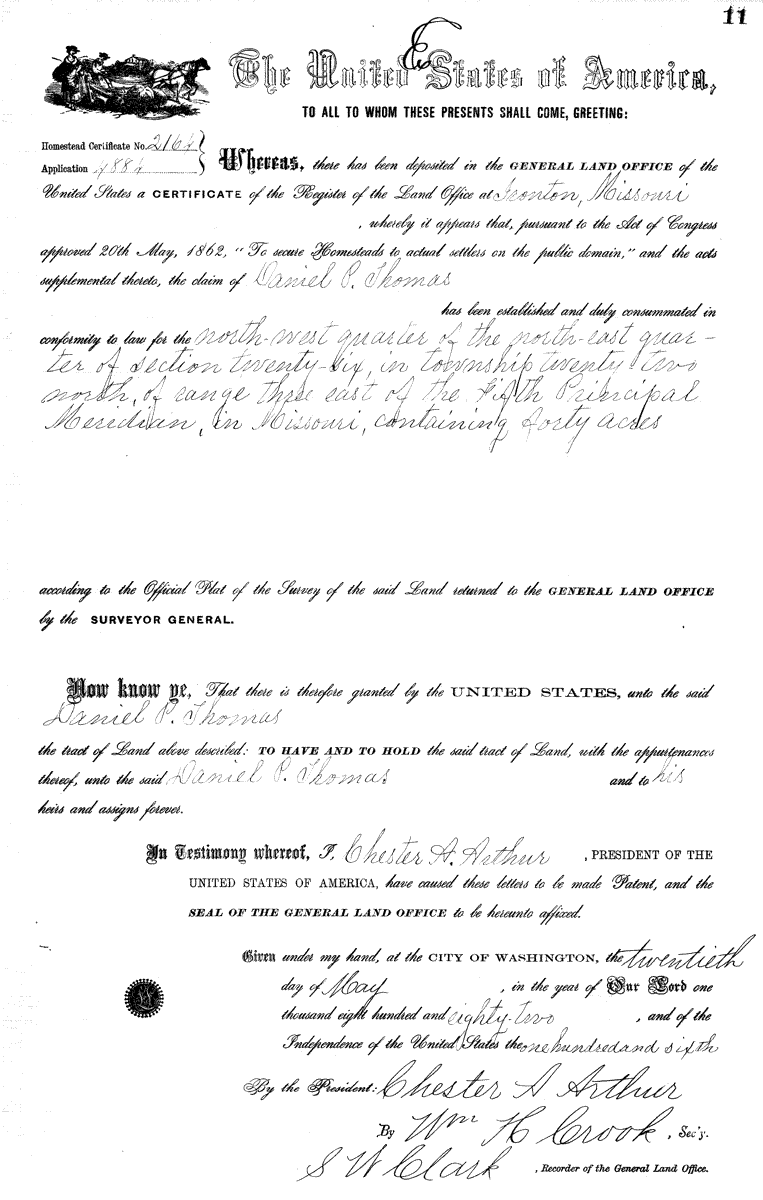 11
Ex
The United States of America,
TO ALL TO WHOM THESE PRESENTS SHALL COME, GREETING:
Homestead Certificate No. 2164
Application 4884
Whereas, there has been deposited in the GENERAL LAND OFFICE of the
United States a CERTIFICATE of the Register of the Land Office at Ironton, Missouri
, whereby it appears that, pursuant to the Act of Congress
approved 20th May, 1862, "To secure Homesteads to actual settlers on the public domain," and the acts
supplemental thereto, the claim of Daniel P. Thomas
has been established and duly consummated in
conformity to law for the north-west quarter of the north-east quar-
ter of section twenty-six, in township twenty two
north, of range three east of the Fifth Principal
Meridian, in Missouri, containing forty acres
according to the Official Plat of the Survey of the said Land returned to the GENERAL LAND OFFICE
by the SURVEYOR GENERAL.
Now know ye, That there is therefore granted by the UNITED STATES, unto the said
Daniel P. Thomas
the tract of Land above described: TO HAVE AND TO HOLD the said tract of Land, with the appurtenances
thereof, unto the said Daniel P. Thomas and to his
heirs and assigns forever.
In Testimony whereof, I, Chester A. Arthur , PRESIDENT OF THE
UNITED STATES OF AMERICA, have caused these letters to be made Patent, and the
SEAL OF THE GENERAL LAND OFFICE to be hereunto affixed.
Given under my hand, at the CITY OF WASHINGTON, the twentieth
day of May , in the year of Our Lord one
thousand eight hundred and eighty-two , and of the
Independence of the United States the one hundred and sixth
By the President: Chester A Arthur
By Wm H Crook , Sec'y.
S W Clark , Recorder of the General Land Office.